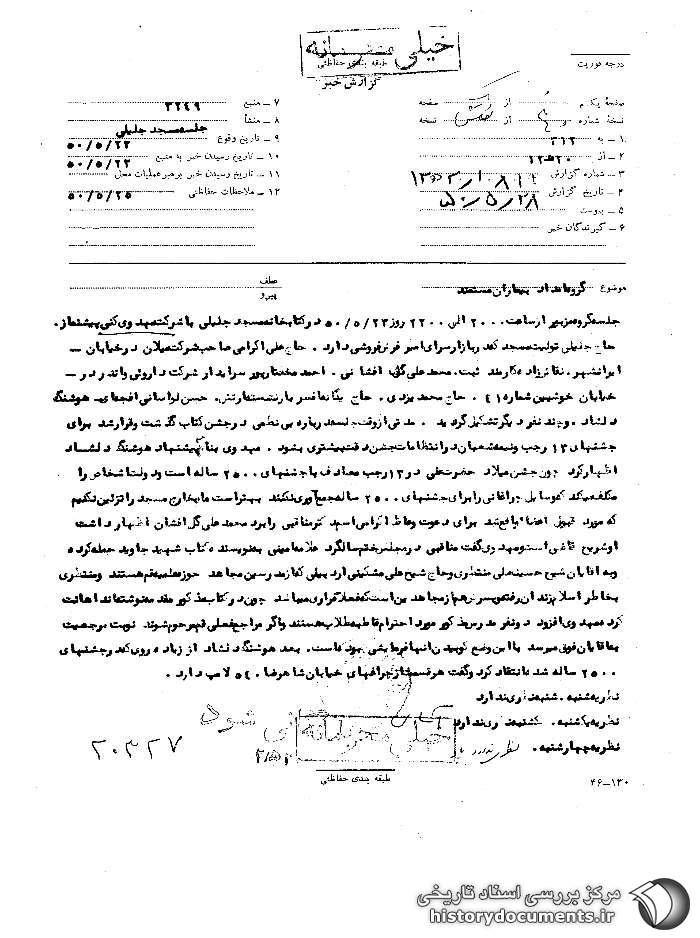 خیلی محرمانه
طبقه بندی حفاظتی
گزارش خبر
درجه فوریت
صفحه یکم از صفحه
نسخه شماره از نسخه
۱ ـ به ۳۱۲
۲ ـ از ۲۰ﻫ۱۲
۳ ـ شماره گزارش
۴ ـ تاریخ گزارش ۵۰/۵/۲۸
۵ ـ پیوست
۶ ـ گیرندگان خبر
۷ ـ منبع ۳۲۴۹
۸ ـ منشأ جلسه مسجد جلیلی
۹ ـ تاریخ وقوع ۵۰/۵/۲۳
۱۰ ـ تاریخ رسیدن خبر به منبع ۵۰/۵/۲۳
۱۱ ـ تاریخ رسیدن خبر به رهبر عملیات محل
۱۲ ـ ملاحظات حفاظتی ۵۰/۵/۲۵
موضوع گروه امداد بیماران مستمند
عطف
پیرو
جلسه گروه مزبور از ساعت ۲۰۰۰ الی ۲۲۰۰ روز ۵۰/۵/۲۳ در کتابخانه مسجد جلیلی با شرکت مهدوی کنی پیشنماز.
حاج جلیلی تولیت مسجد که در بازار سرای امیر فرش فروشی دارد. حاج علی اکرامی صاحب شرکت میلان در خیابان ـ
ایرانشهر. نقاش زاد کارمند ثبت. محمد علی گل افشانی. احمد مختارپور سرایدار شرکت داروئی واندر در ـ
خیابان خوشبین شماره ۴۱. حاج محمد یزدی. حسن لواسانی هوشنگ
دلشاد. و چند نفر دیگر تشکیل گردید. مدتی از وقت جلسه درباره بی نظمی در جشن کتاب گذشت و قرار شد برای
جشنهای ۱۳ رجب و نیمه شعبان در انتظامات جشن دقت بیشتری بشود. مهدوی بنا به پیشنهاد هوشنگ دلشاد
اظهار کرد چون جشن میلاد حضرت علی در ۱۳ رجب مصادف با جشنهای ۲۵۰۰ ساله است و دولت اشخاص را
مکلف میکند که وسایل چراغانی را برای جشنهای ۲۵۰۰ ساله جمع آوری نکنند بهتر است ما بخارج مسجد را تزئین نکنیم
که مورد قبول اعضاء واقع شد برای دعوت وعاظ اکرامی اسم دکتر مناقبی را برد محمد علی گل افشان اظهار داشت
او شریح قاضی است و مهدوی گفت مناقبی در مجلس ختم سالگرد علامه امینی به نویسنده کتاب شهید جاوید حمله کرده
و به آقایان شیخ حسینعلی منتظری و حاج شیخ علی مشکینی اردبیلی که از مدرسین مجاهد حوزه علمیه قم هستند و منتظری
بخاطر اسلام زندان رفته و پسرش هم از مجاهدین است که فعلا فراری میباشد چون در کتاب مذکور مقدمه نوشته اند اهانت
کرد مهدوی افزود دو نفر مدرس مذکور مورد احترام قاطبه طلاب هستند و اگر مراجع فعلی قم مرحوم شوند نوبت مرجعیت
به آقایان فوق میرسد با این وضع کوبیدن آنها فرمایشی بوده است. بعد هوشنگ دلشاد از زیاده روی که در جشنهای
۲۵۰۰ ساله شده انتقاد کرد و گفت هر قسمت از چراغهای خیابان شاهرضا ۵۴ لامپ دارد.
نظریه شنبه. شنبه نظری ندارد
نظریه یکشنبه. یکشنبه نظری ندارد
نظریه چهارشنبه. نظری ندارد.
شود
خیلی محرمانه
۲۰۳۲۷
طبقه بندی حفاظتی
۱۳۰ـ۴۶
مرکز بررسی اسناد تاریخی
historydocuments.ir